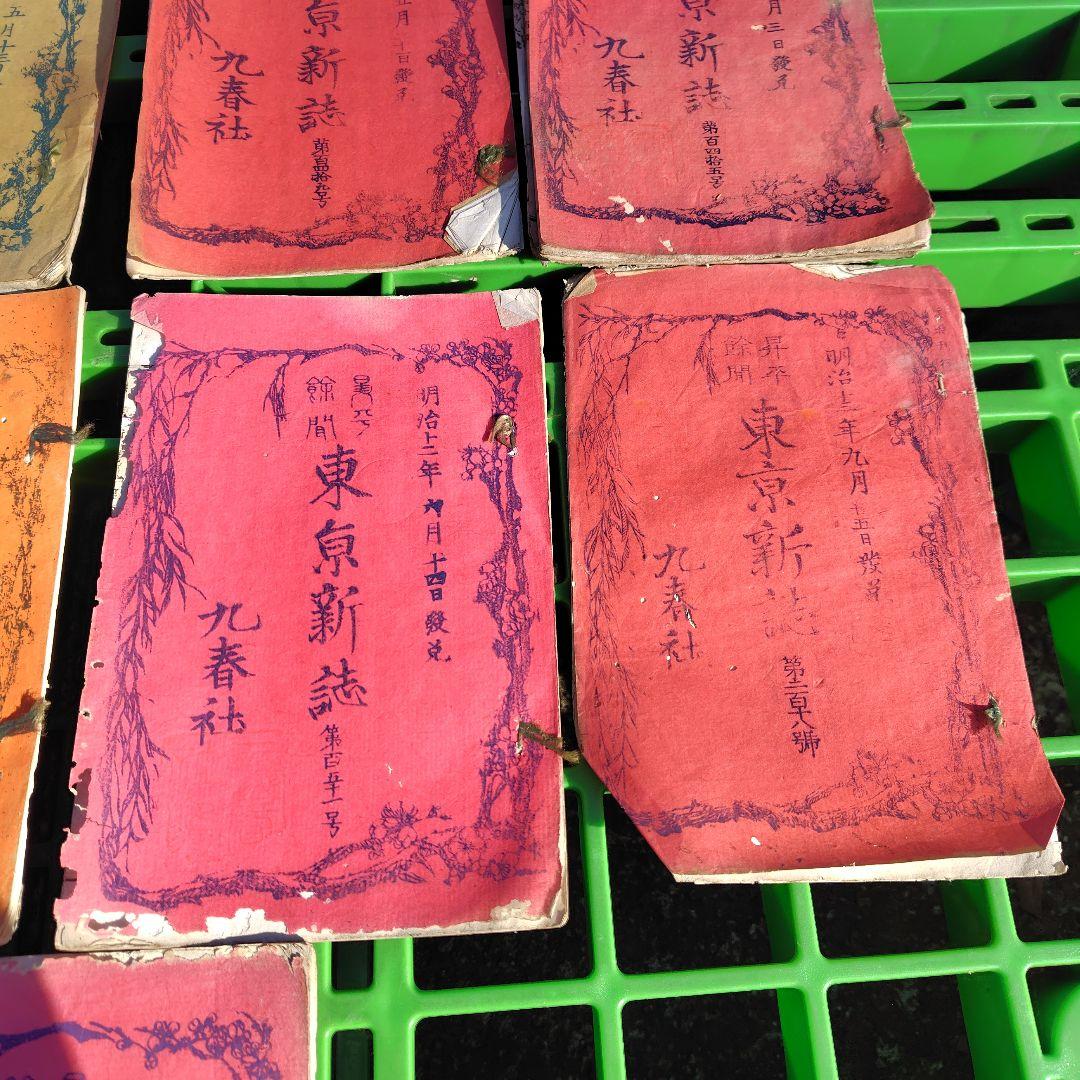 五月十三
五月
京新誌
第百四拾九号
九春社
月三日發兌
京新誌
第百四拾五号
九春社
明治十二年六月十四日發兌
昇平
餘聞
東京新誌
第百五十一号
九春社
年九月十五日發兌
昇平
餘聞
東京新誌
第二百十八號
九春社